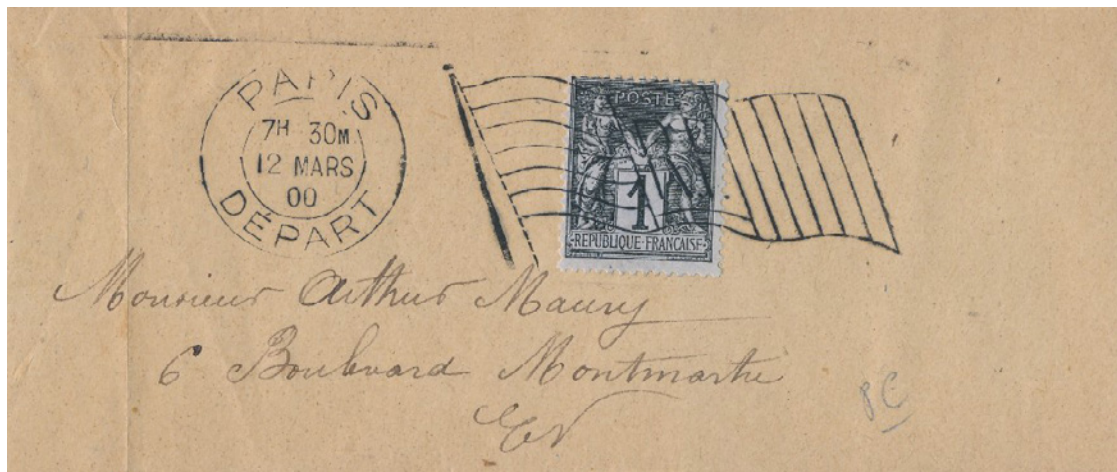 PARIS
7H 30M
12 MARS
00
DÉPART
POSTE
1
REPUBLIQUE FRANÇAISE
Monsieur Arthur Maury
6 Boulevard Montmartre
EV
PC